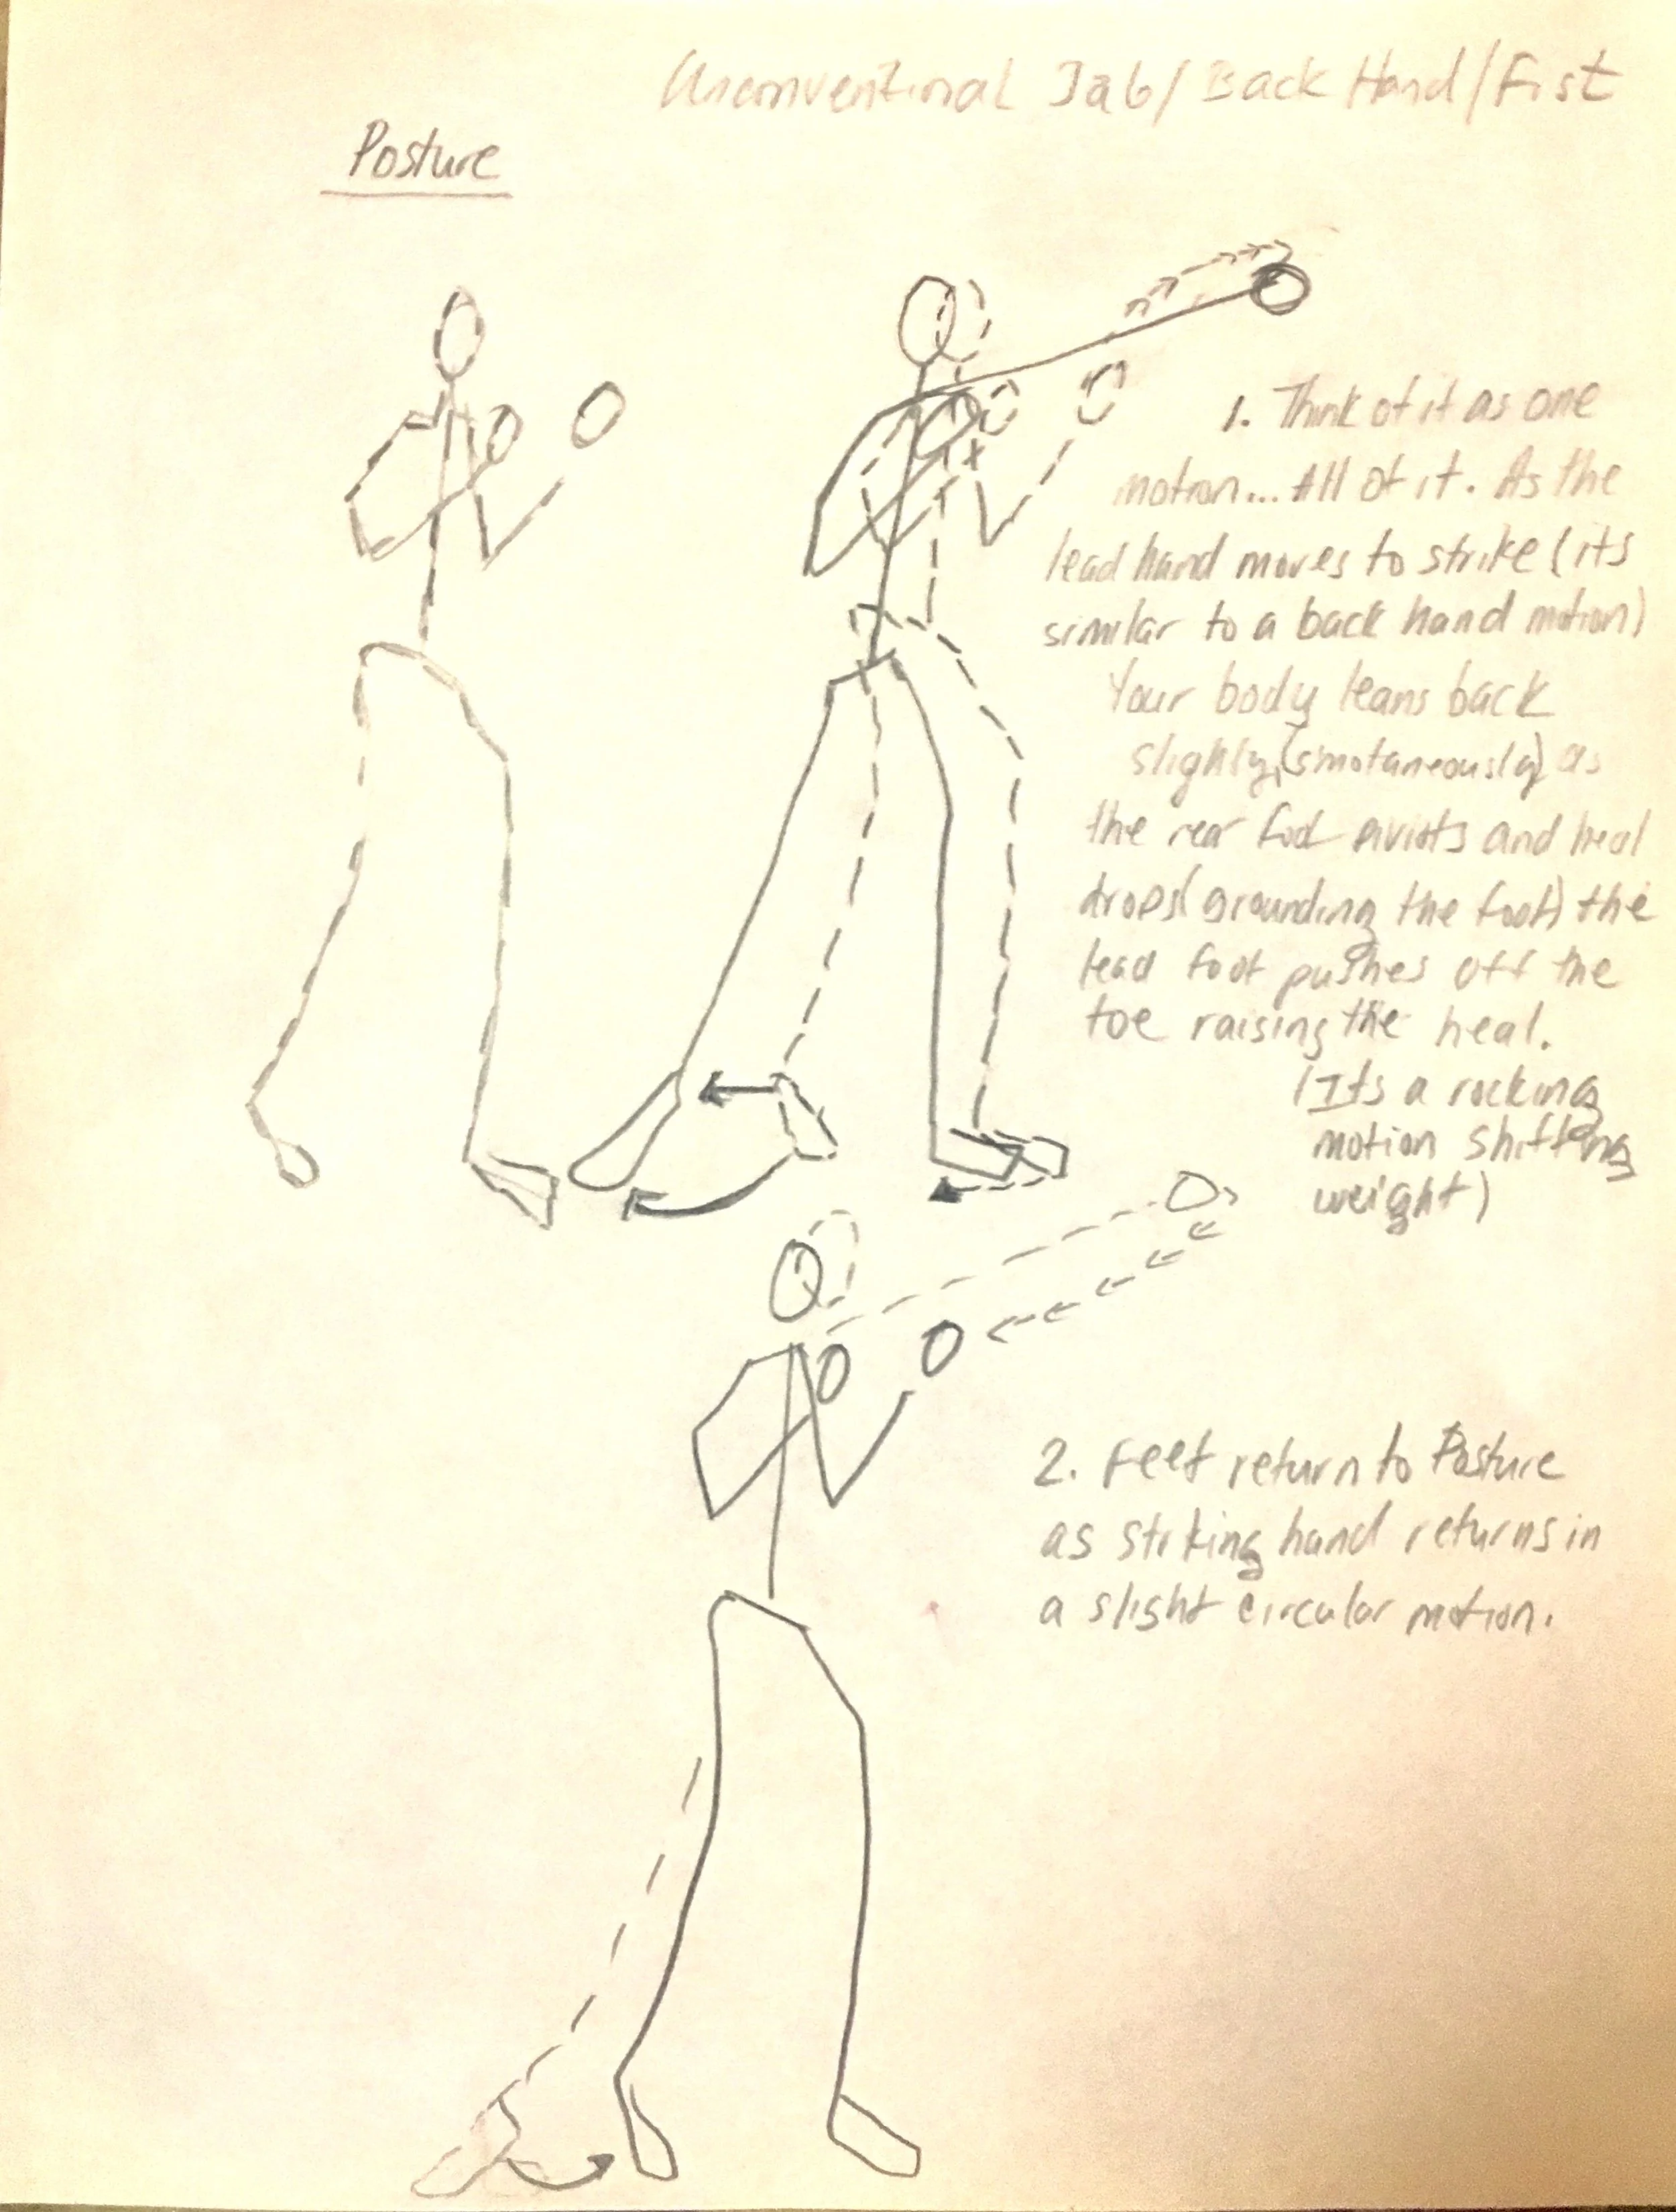 Unconventional Jab/Back Hand/Fist
Posture
1. Think of it as one
motion... All of it. As the
lead hand moves to strike (its
similar to a back hand motion)
Your body leans back
slighly, (smotaneously) as
the rear foot pivots and heal
drops (grounding the foot) the
lead foot pushes off the
toe raising the heal.
(Its a rocking
motion shifting
weight)
2. Feet return to Posture
as striking hand returns in
a slight circular motion.